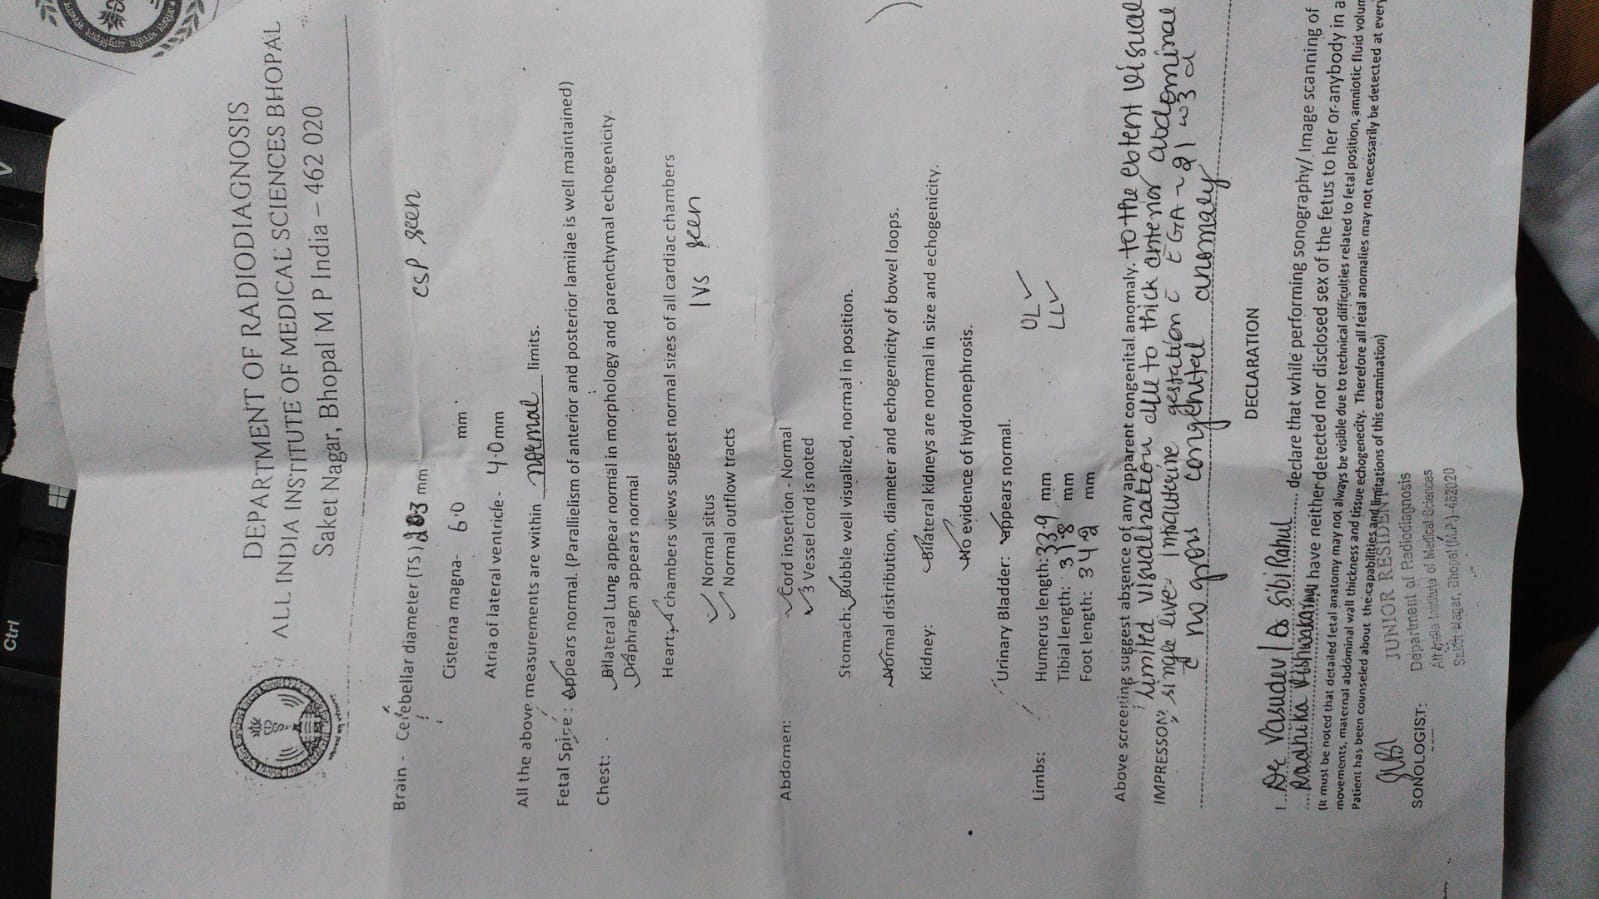 DEPARTMENT OF RADIODIAGNOSIS
ALL INDIA INSTITUTE OF MEDICAL SCIENCES BHOPAL
Saket Nagar, Bhopal M P India – 462 020
Brain - Cerebellar diameter (TS) 203 mm CSP seen
Cisterna magna- 6.0 mm
Atria of lateral ventricle - 4.0 mm
All the above measurements are within normal limits.
Fetal Spine : Appears normal. (Parallielism of anterior and posterior lamilae is well maintained)
Chest: Bilateral Lung appear normal in morphology and parenchymal echogenicity.
Diaphragm appears normal
Heart: 4 chambers views suggest normal sizes of all cardiac chambers
✓ Normal situs IVS seen
✓ Normal outflow tracts
Abdomen: Cord insertion - Normal
3 Vessel cord is noted
Stomach: bubble well visualized, normal in position.
Normal distribution, diameter and echogenicity of bowel loops.
Kidney: Bilateral kidneys are normal in size and echogenicity.
No evidence of hydronephrosis.
Urinary Bladder: appears normal.
Limbs: Humerus length: 33.9 mm UL ✓
Tibial length: 31.8 mm LL ✓
Foot length: 34.2 mm
Above screening suggest absence of any apparent congenital anomaly. to the extent visual
limited visualization due to thick anterior abdominal
IMPRESSION: single live intrauterine gestation c EGA ~ 21 w 3 d
c no gross congenital anomaly
DECLARATION
I, Dr Vasudev / Dr Sibi Rahul declare that while performing sonography/ Image scanning of
Radhika Vishwakarma, I have neither detected nor disclosed sex of the fetus to her or anybody in a
(It must be noted that detailed fetal anatomy may not always be visible due to technical difficulties related to fetal position, amniotic fluid volum
movements, maternal abdominal wall thickness and tissue echogenicity. Therefore all fetal anomalies may not necessarily be detected at every
Patient has been counseled about the capabilities and limitations of this examination)
JUNIOR RESIDENT
SONOLOGIST: Department of Radiodiagnosis
All India Institute of Medical Sciences
Saket Nagar, Bhopal (M.P.)-462020
Ctrl